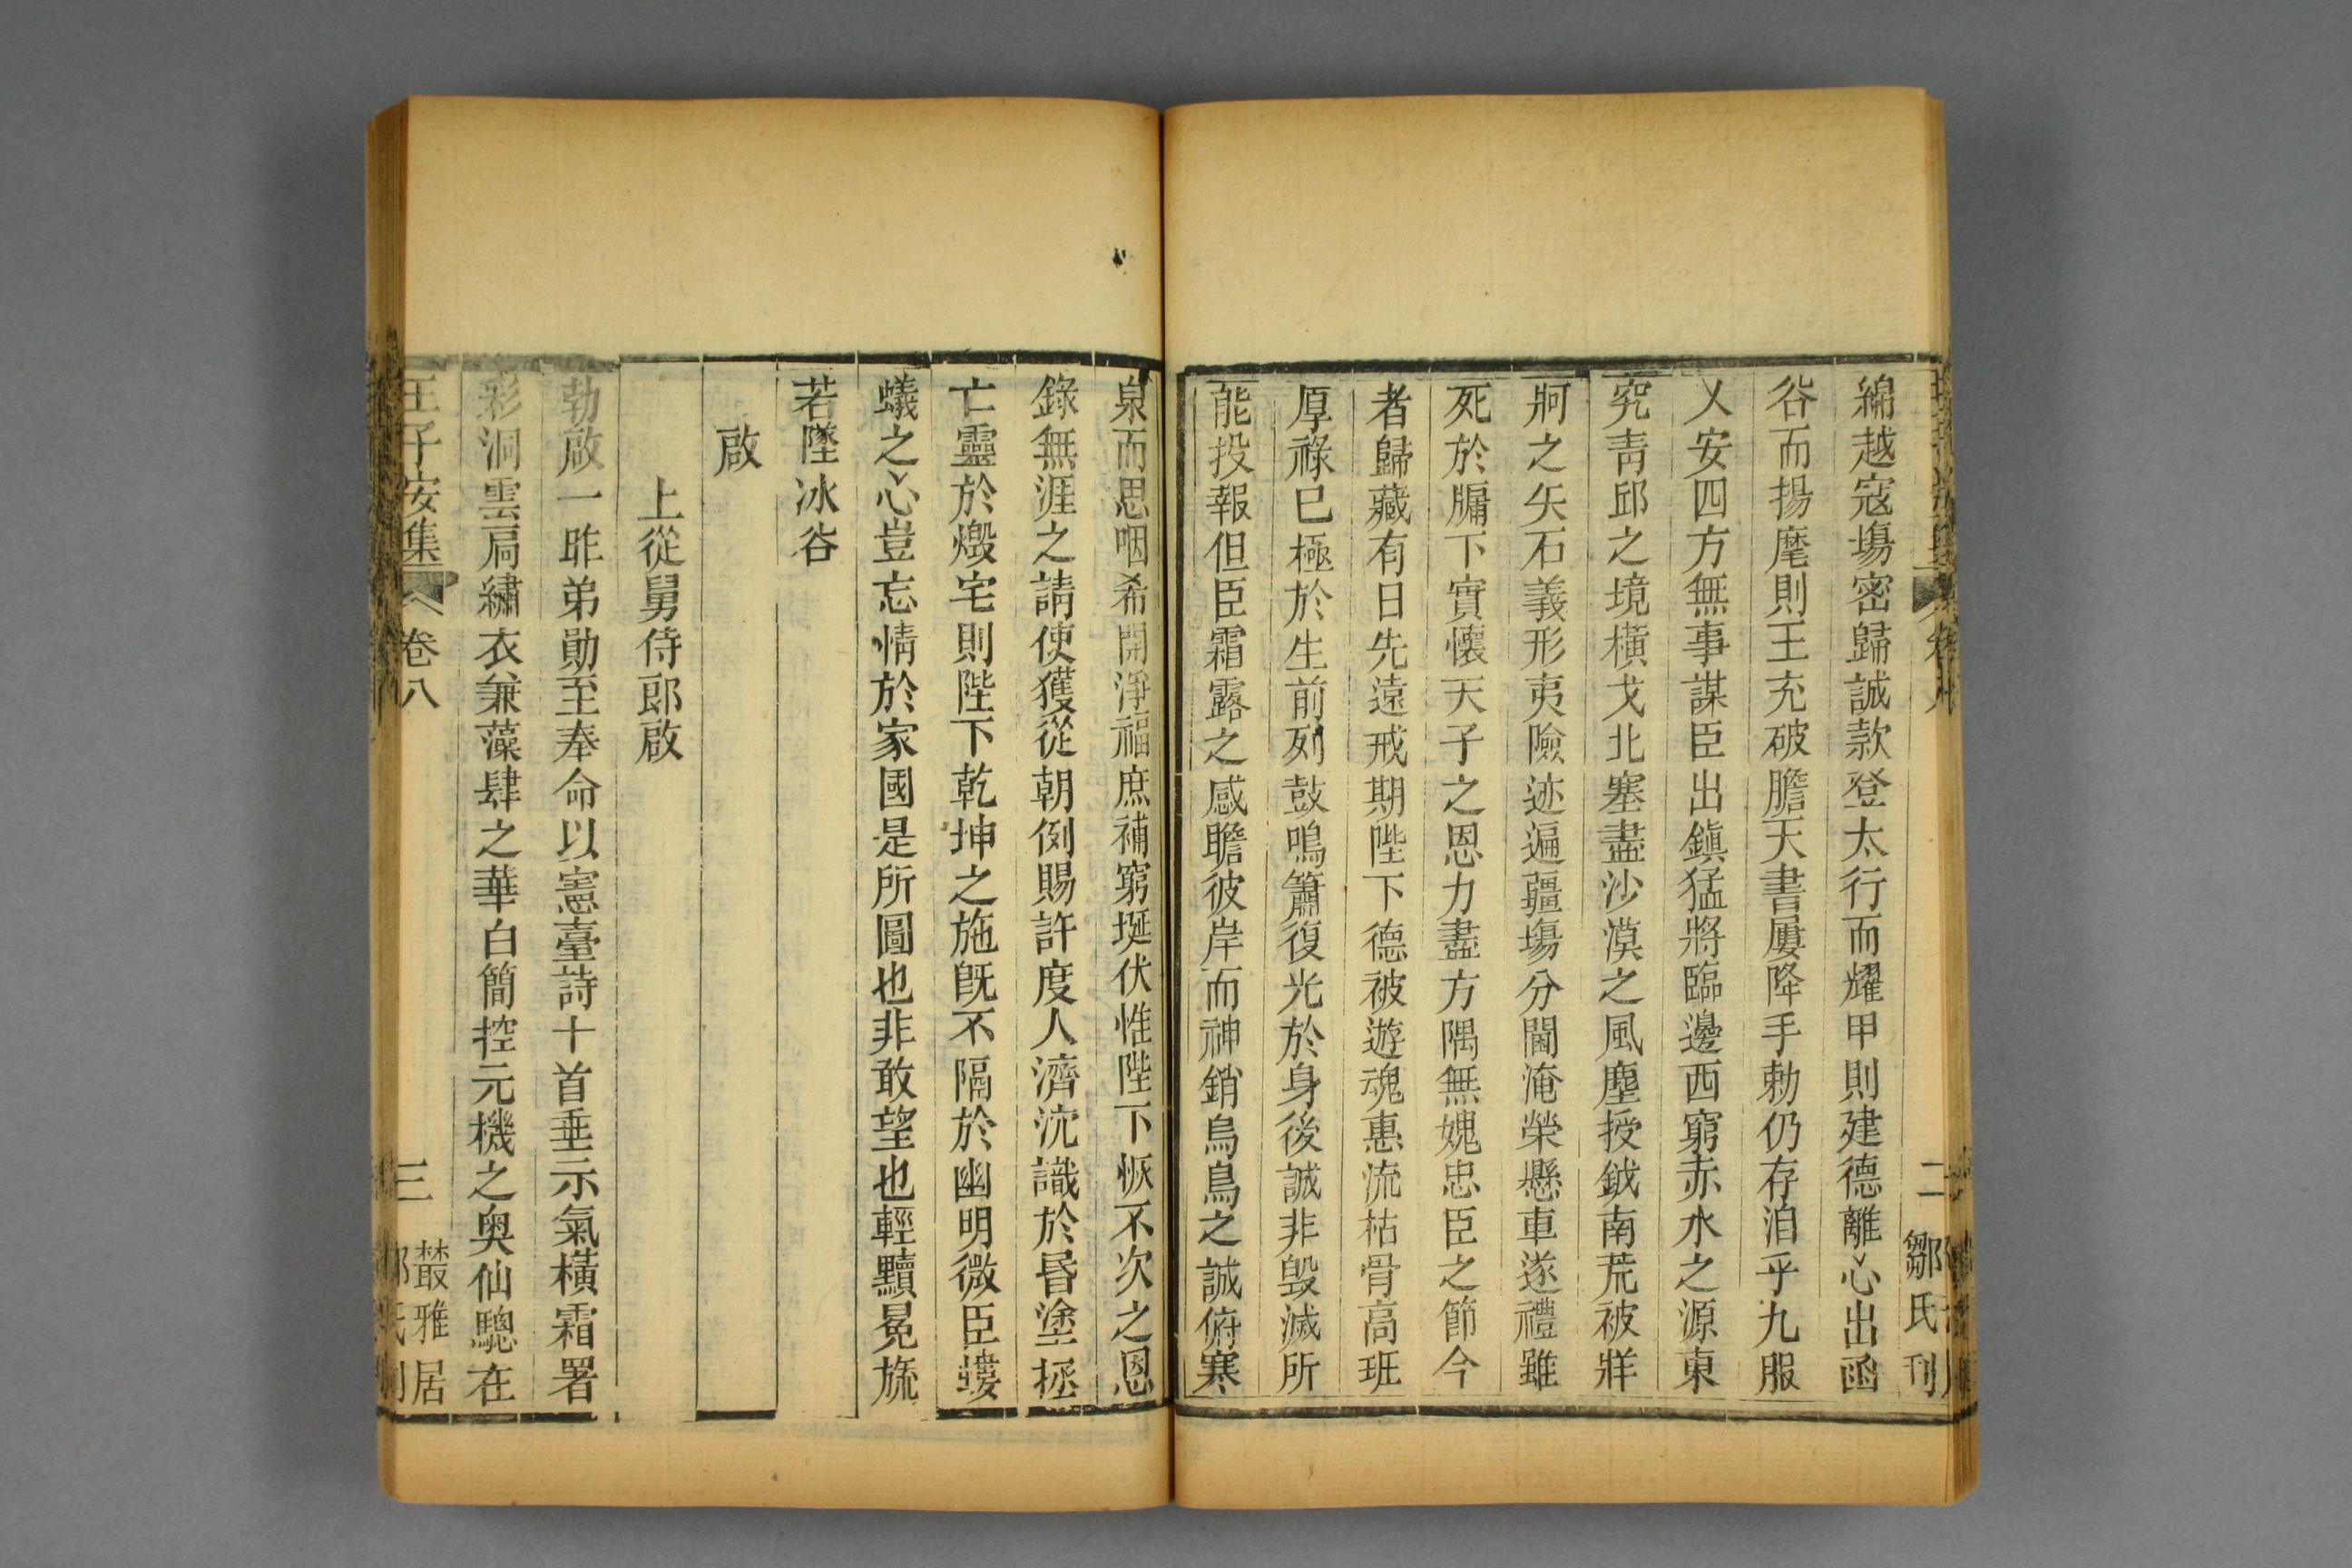 綿越寇塲密歸誠款登太行而耀甲則建德離心出函
谷而揚麾則王充破膽天書屢降手勅仍存洎乎九服
乂安四方無事謀臣出鎭猛將臨邊西窮赤水之源東
究靑邱之境橫戈北塞盡沙漠之風塵授鉞南荒被牂
牁之矢石義形夷險迹遍疆塲分閫淹榮懸車遂禮雖
死於牖下實懷天子之恩力盡方隅無媿忠臣之節今
者歸藏有日先遠戒期陛下德被遊魂惠流枯骨高班
厚祿已極於生前列鼓鳴簫復光於身後誠非毀滅所
能投報但臣霜露之感瞻彼岸而神銷烏鳥之誠俯寒
二 鄒氏刊
泉而思咽希開淨福庶補窮埏伏惟陛下恢不次之恩
錄無涯之請使獲從朝例賜許度人濟沈識於昏塗拯
亡靈於燬宅則陛下乾坤之施旣不隔於幽明微臣螻
蟻之心豈忘情於家國是所圖也非敢望也輕黷冕旒
若墜冰谷
啟
上從舅侍郎啟
勃啟一昨弟勛至奉命以憲臺詩十首垂示氣橫霜署
彩洞雲扃繡衣兼藻肆之華白簡控元機之奧仙驄在
王子安集 卷八 三 叢雅居